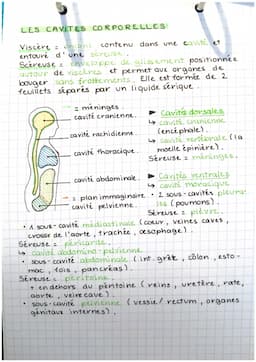 LES CAVITÉS CORPORELLES
Viscère : organe contenu dans une cavité et
entouré d'une séreuse.
Séreuse : enveloppe de glissement positionnée
autour de viscères et permet aux organes de
bouger sans frottements. Elle est formée de 2
feuillets séparés par un liquide sérique.
: méninges
cavité cranienne.
cavité rachidienne
cavité thoracique.
cavité abdominale
: plan immaginaire
cavité pelvienne
► Cavités dorsales
↳ cavité cranienne
(encéphale).
↳ cavité vertébrale (la
moelle épinière).
Séreuse : méninges.
► Cavités ventrales
↳ cavité thoracique
• 2 sous-cavités pleura-
les (poumons).
Séreuse : plèvre.
• 1 sous-cavité médiastinale (coeur, veines caves,
crosse de l'aorte, trachée, oesophage).
Séreuse : péricarde.
↳ cavité abdomino-pelvienne
• sous-cavité abdominale (int. grêle, côlon, esto-
mac, foie, pancréas).
Séreuse : péritoine.
• en dehors du péritoine (reins, uretère, rate,
aorte, veine cave).
• sous-cavité pelvienne (vessie / rectum, organes
génitaux internes).